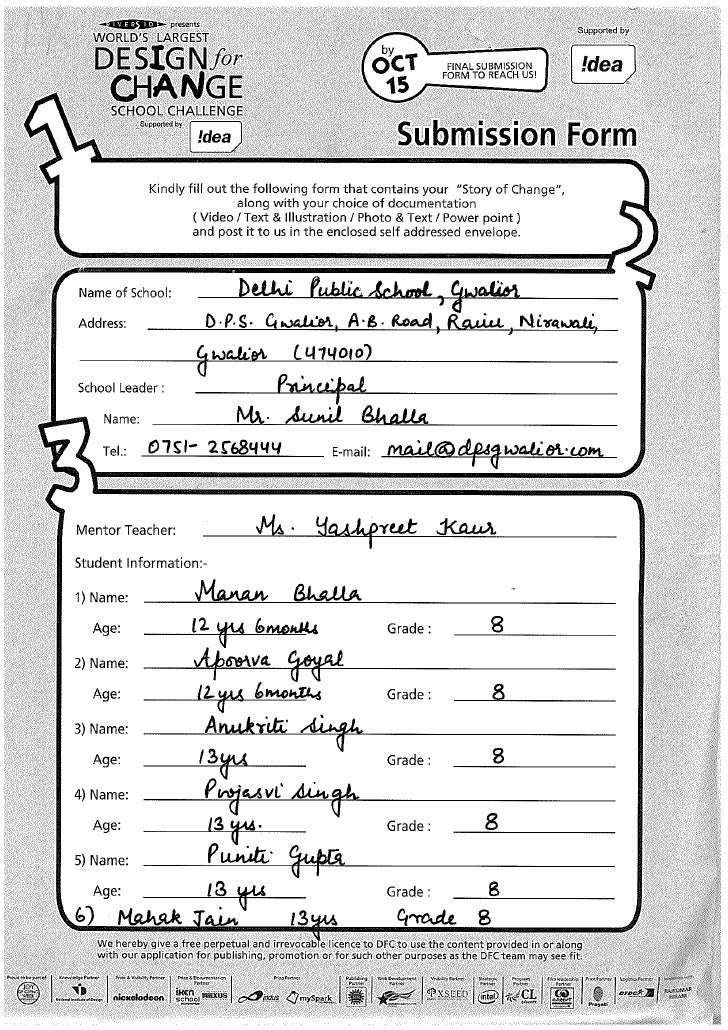 RIVERSIDE presents
WORLD'S LARGEST
DESIGN for
CHANGE
SCHOOL CHALLENGE
Supported by
!dea
by
OCT
15
FINAL SUBMISSION
FORM TO REACH US!
Supported by
!dea
Submission Form
1
Kindly fill out the following form that contains your "Story of Change",
along with your choice of documentation
( Video / Text & Illustration / Photo & Text / Power point )
and post it to us in the enclosed self addressed envelope.
2
Name of School: Delhi Public School, Gwalior
Address: D.P.S. Gwalior, A.B. Road, Nirawali,
Gwalior (474010)
School Leader : Principal
Name: Mr. Sunil Bhalla
Tel.: 0751- 2568444 E-mail: mail@dpsgwalior.com
3
Mentor Teacher: Ms. Yashpreet Kaur
Student Information:-
1) Name: Manan Bhalla
Age: 12 yrs 6months Grade : 8
2) Name: Apoorva Goyal
Age: 12 yrs 6months Grade : 8
3) Name: Anukriti Singh
Age: 13yrs Grade : 8
4) Name: Singh
Age: 13 yrs. Grade : 8
5) Name: Puniti Gupta
Age: 13 yrs Grade : 8
6) Mahak Jain 13yrs Grade 8
We hereby give a free perpetual and irrevocable licence to DFC to use the content provided in or along
with our application for publishing, promotion or for such other purposes as the DFC team may see fit.
Proud to be part of
Knowledge Partner
National Institute of Design
Prize & Visibility Partner
nickelodeon
Prize & Documentation Partner
iken school NEXUS
Prize Partner
indus mySpark
Publishing Partner
Web Development Partner
Visibility Partner
XSEED
Strategic Partner
intel
Program Partner
CL
Print Partner
Pragati
Logistics Partner
RAJKUMAR